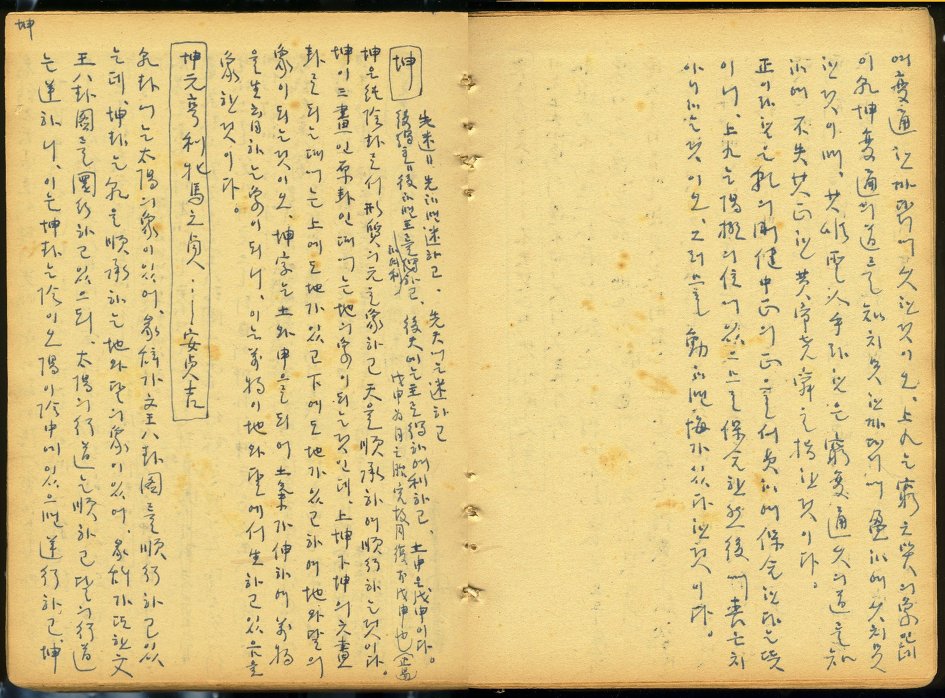 變通한까닭에 久한것이오, 上九는 窮之災의象인데
이 乾坤變通의道를 知치못한까닭에 盈하여 久치못
한것이며, 其唯聖人乎라 함은 窮變通久의道를 知
하여 不失其正한 堯舜之
正이라함은 乾의 剛健中正의正을 保合한다는뜻
이니, 上九는 陽極의位에 있으므로 保合한然後에 喪亡치
아니하는것이오, 그러므로 動하면 悔가있다한것이다.
坤
坤
先迷는 先하면 迷하고, 先天에는 迷하고
後得主는 後하면 主를得하고, 後天에는 主를得하여 利하고, 土申은 戊申이다.
戊申
坤은 純陰卦로서 形質의元을 象하고 天을 順承하여 順行하는것이다.
坤이 三畫인 原卦인때에는 地의象이되는것인데, 上坤下坤의 六畫
卦로되는때에는 上에도 地가있고 下에도 地가있고하여 地와달의
象이되는것이오, 坤字는 土와申으로되어 土氣가伸하여 萬物
을生育하는象이되니, 이는萬物이地와달에서生하고있음을
象한것이다.
坤元亨利牝馬之貞……安貞吉
乾卦에는太陽의象이있어, 彖辭가文王八卦圖를順行하고있
는데, 坤卦는乾을順承하는地와달의象이있어, 彖辭가또한文
王八卦圖를運行하고있으되, 太陽의行道는順하고달의行道
는逆하니, 이는坤卦는陰이오陽이陰中에있으면逆行하고, 坤